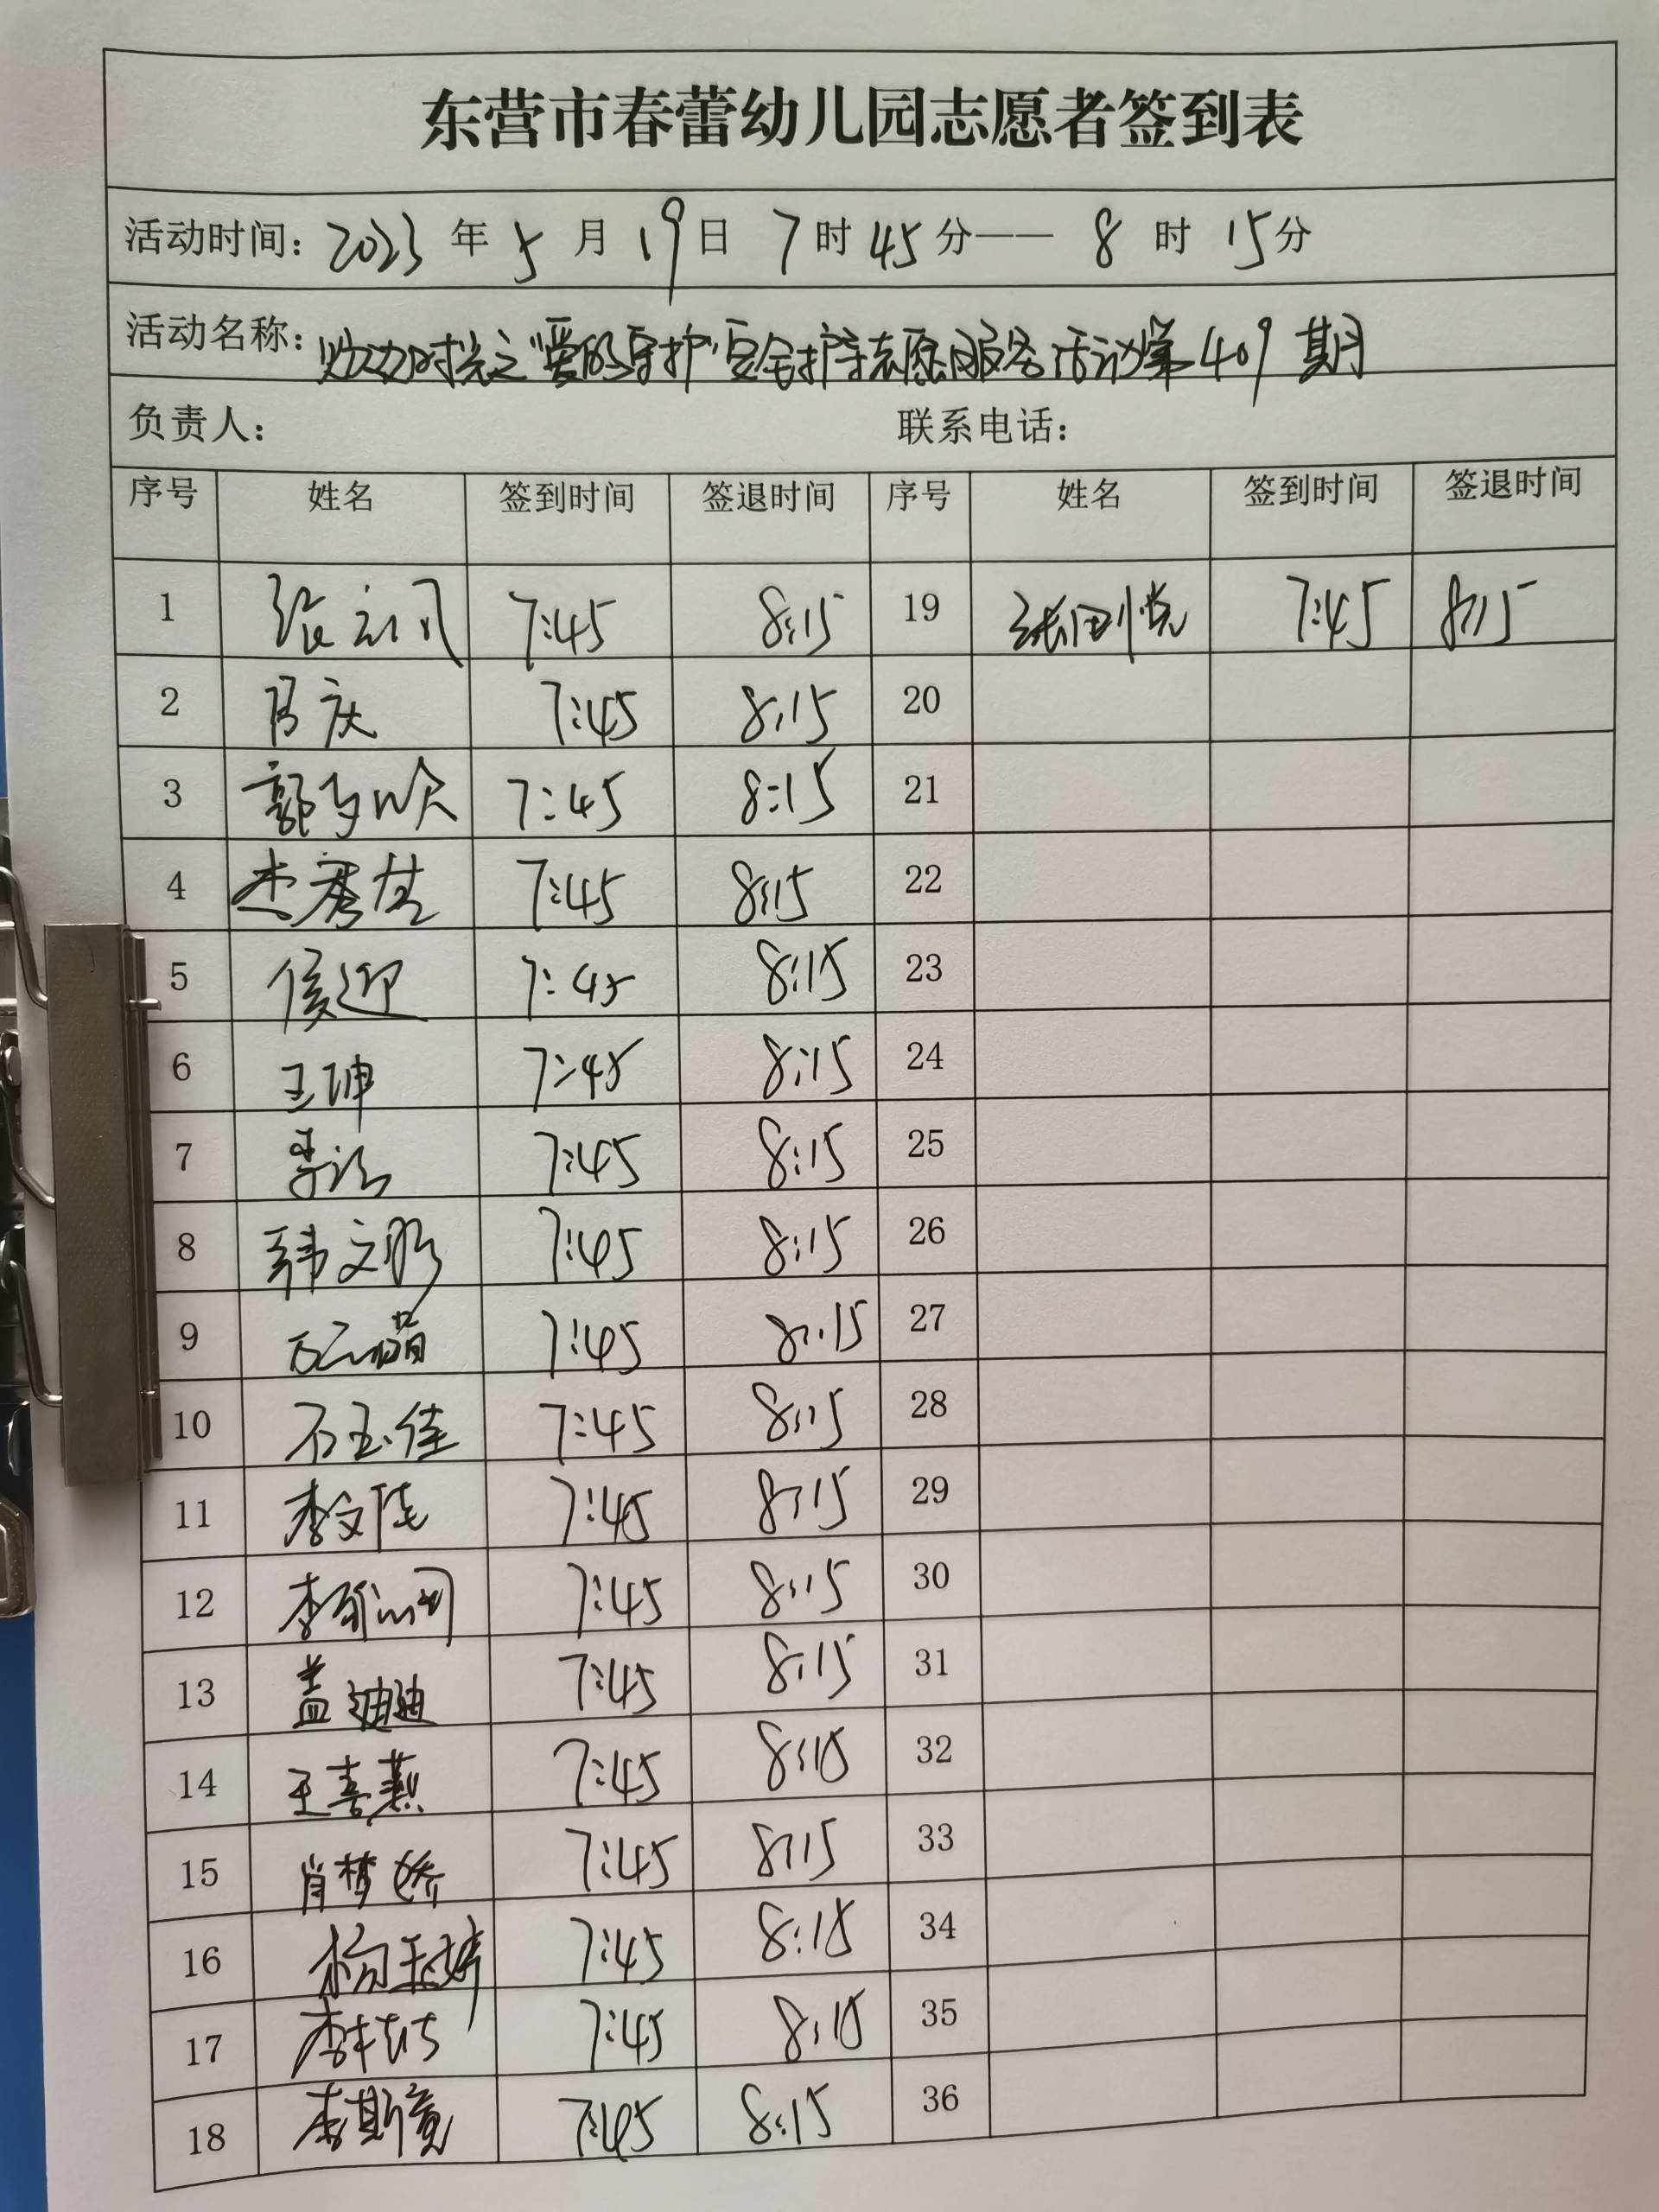 东营市春蕾幼儿园志愿者签到表
活动时间：2023 年 5 月 19 日 7 时 45 分—— 8 时 15 分
活动名称： 时光之“爱的守护”安全护导志愿服务活动第409期
负责人： 联系电话：
序号 姓名 签到时间 签退时间 序号 姓名 签到时间 签退时间
1 7:45 8:15 19 张田悦 7:45 8:15
2 7:45 8:15 20
3 郭 7:45 8:15 21
4 7:45 8:15 22
5 侯迎 7:45 8:15 23
6 王坤 7:45 8:15 24
7 李 7:45 8:15 25
8 韩文 7:45 8:15 26
9 7:45 8:15 27
10 石玉佳 7:45 8:15 28
11 李文 7:45 8:15 29
12 李 7:45 8:15 30
13 盖迪迪 7:45 8:15 31
14 王喜燕 7:45 8:15 32
15 肖梦娇 7:45 8:15 33
16 杨玉婷 7:45 8:15 34
17 李 7:45 8:15 35
18 李斯 7:45 8:15 36